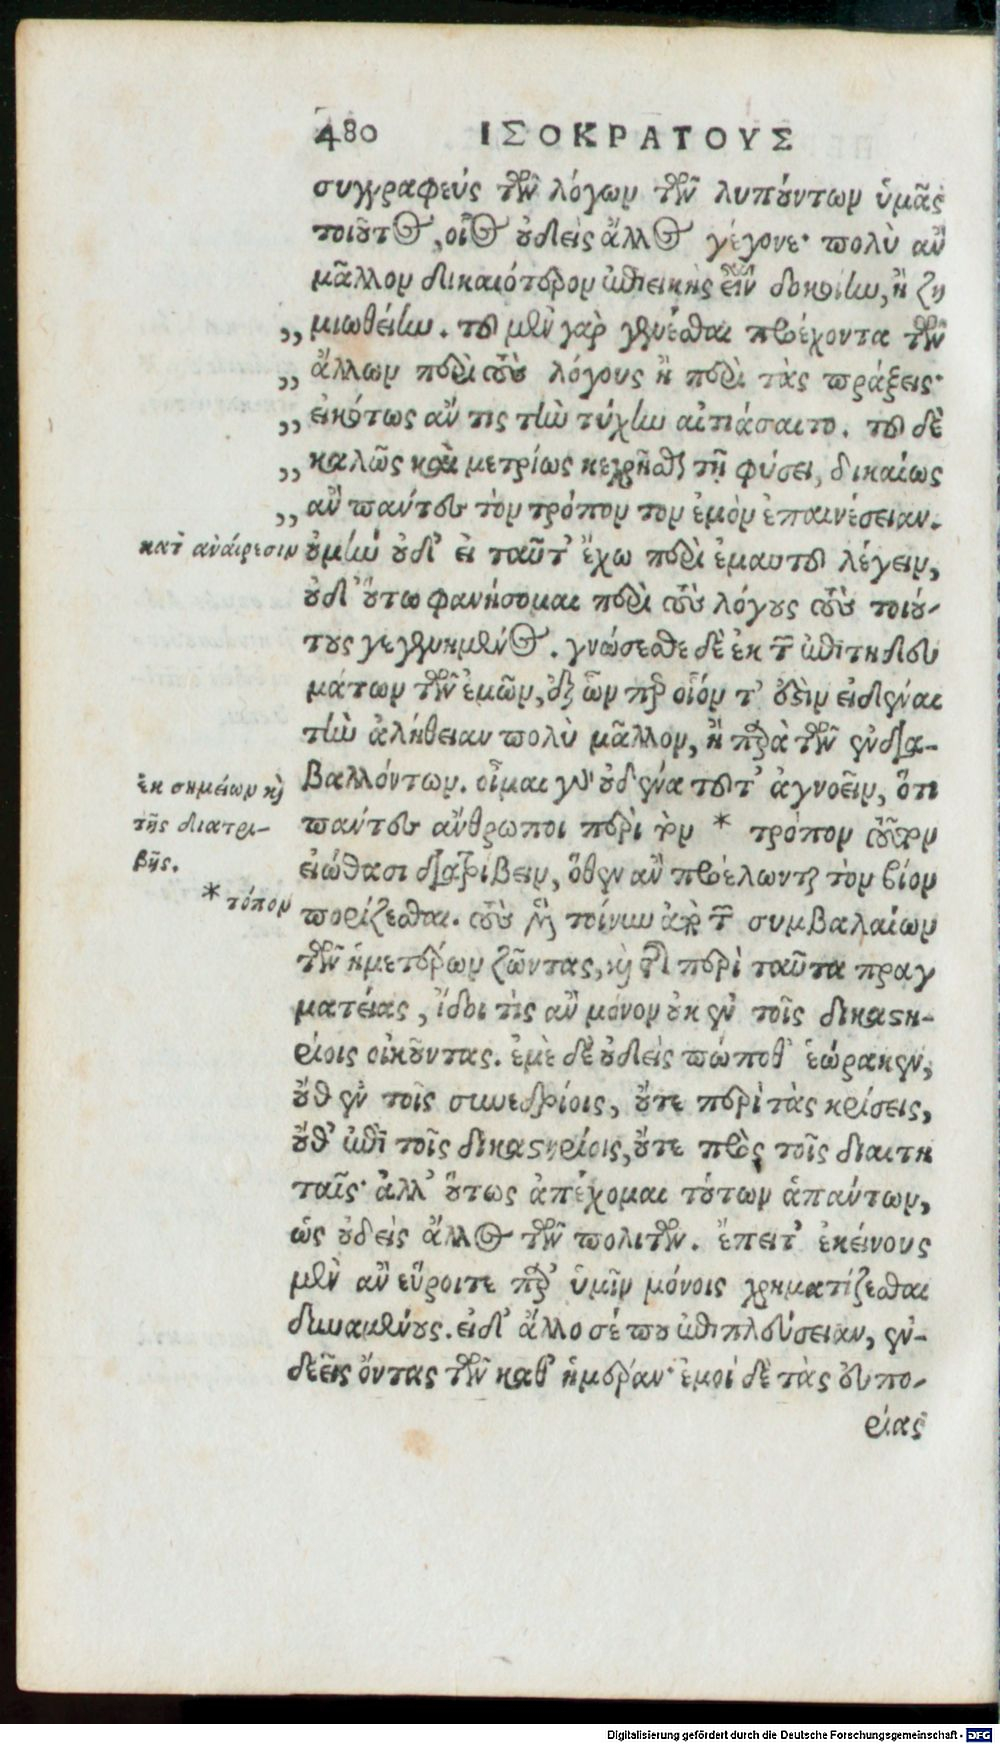 480 ΙΣΟΚΡΑΤΟΥΣ
συγγραφεὺς τῶν λόγων τῶν λυπούντων ὑμᾶς
τοιοῦτος, οἷος οὐδεὶς ἄλλος γέγονε· πολὺ ἂν
μᾶλλον δικαιότερον ἐπιεικὴς εἶναι δοκοίην, ἢ ζη
„ μιωθείην. τοῦ μὲν γὰρ γενέσθαι προέχοντα τῶν
„ ἄλλων περὶ τοὺς λόγους ἢ περὶ τὰς πράξεις·
„ εἰκότως ἄν τις τὴν τύχην αἰτιάσαιτο. τοῦ δὲ
„ καλῶς καὶ μετρίως κεχρῆσθαι τῇ φύσει, δικαίως
„ ἂν πάντες τὸν τρόπον τὸν ἐμὸν ἐπαινέσειαν.
κατ' ἀναίρεσιν
οὐμὴν οὐδ' εἰ ταῦτ' ἔχω περὶ ἐμαυτοῦ λέγειν,
οὐδ' οὕτω φανήσομαι περὶ τοὺς λόγους τοὺς τοιού-
τους γεγενημένος. γνώσεσθε δὲ ἐκ τῶν ἐπιτηδευ
μάτων τῶν ἐμῶν, ἐξ ὧν περ οἷόν τ' ἐστὶν εἰδέναι
τὴν ἀλήθειαν πολὺ μᾶλλον, ἢ παρὰ τῶν ἐνδια-
βαλλόντων. οἶμαι γὰρ οὐδένα τοῦτ' ἀγνοεῖν, ὅτι
ἐκ σημείων καὶ
τῆς διατρι-
βῆς.
πάντες ἄνθρωποι περὶ τὸν * τρόπον τοῦτον
εἰώθασι διατρίβειν, ὅθεν ἂν προέλωνται τὸν βίον
* τόπον
πορίζεσθαι. τοὺς μὲν τοίνυν ἀπὸ τῶν συμβολαίων
τῶν ἡμετέρων ζῶντας, καὶ τῆς περὶ ταῦτα πραγ
ματείας, ἴδοι τὶς ἂν μόνον οὐκ ἐν τοῖς δικαστη-
ρίοις οἰκοῦντας. ἐμὲ δὲ οὐδεὶς πώποθ' ἑώρακεν,
οὔθ' ἐν τοῖς συνεδρίοις, οὔτε περὶ τὰς κρίσεις,
οὔθ' ἐπὶ τοῖς δικαστηρίοις, οὔτε πρὸς τοῖς διαιτη
ταῖς· ἀλλ' οὕτως ἀπέχομαι τούτων ἁπάντων,
ὡς οὐδεὶς ἄλλος τῶν πολιτῶν. ἔπειτ' ἐκείνους
μὲν ἂν εὕροιτε παρ' ὑμῖν μόνοις χρηματίζεσθαι
δυναμένους. εἰ δ' ἄλλοσέ που ἐπιπλεύσειαν, ἐν-
δεεῖς ὄντας τῶν καθ' ἡμέραν· ἐμοὶ δὲ τὰς εὐπο-
ρίας
Digitalisierung gefördert durch die Deutsche Forschungsgemeinschaft - DFG